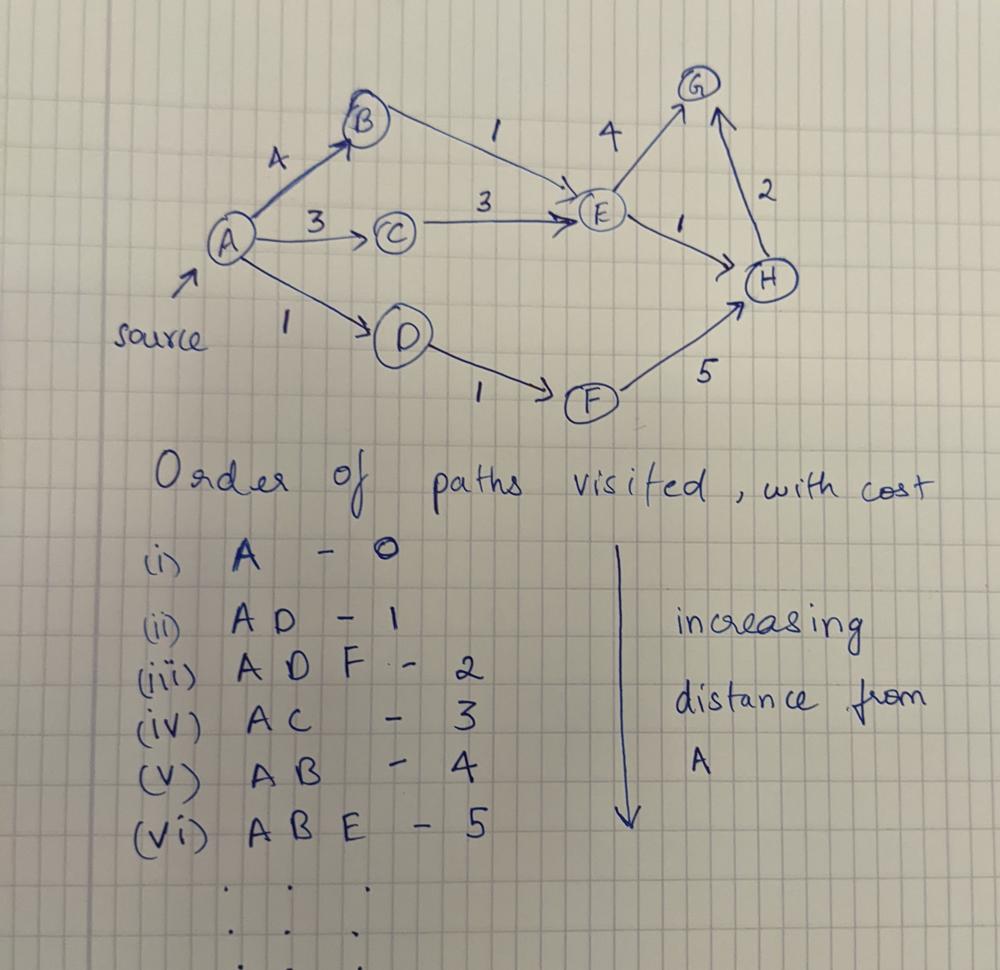 G
B
1
4
4
E
2
3
3
1
A
C
H
source
1
D
5
1
F
Order of paths visited, with cost
(i) A - 0
(ii) A D - 1
(iii) A D F - 2
(iv) A C - 3
(v) A B - 4
(vi) A B E - 5
increasing
distance from
A